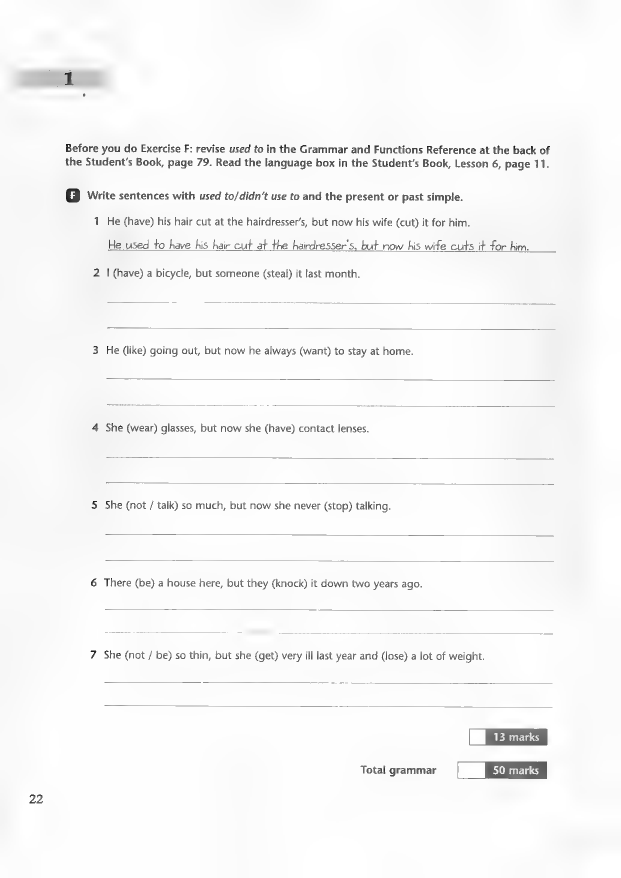 1
Before you do Exercise F: revise used to in the Grammar and Functions Reference at the back of
the Student's Book, page 79. Read the language box in the Student's Book, Lesson 6, page 11.
F Write sentences with used to/didn't use to and the present or past simple.
1 He (have) his hair cut at the hairdresser's, but now his wife (cut) it for him.
He used to have his hair cut at the hairdresser's, but now his wife cuts it for him.
2 I (have) a bicycle, but someone (steal) it last month.
3 He (like) going out, but now he always (want) to stay at home.
4 She (wear) glasses, but now she (have) contact lenses.
5 She (not / talk) so much, but now she never (stop) talking.
6 There (be) a house here, but they (knock) it down two years ago.
7 She (not / be) so thin, but she (get) very ill last year and (lose) a lot of weight.
13 marks
Total grammar 50 marks
22